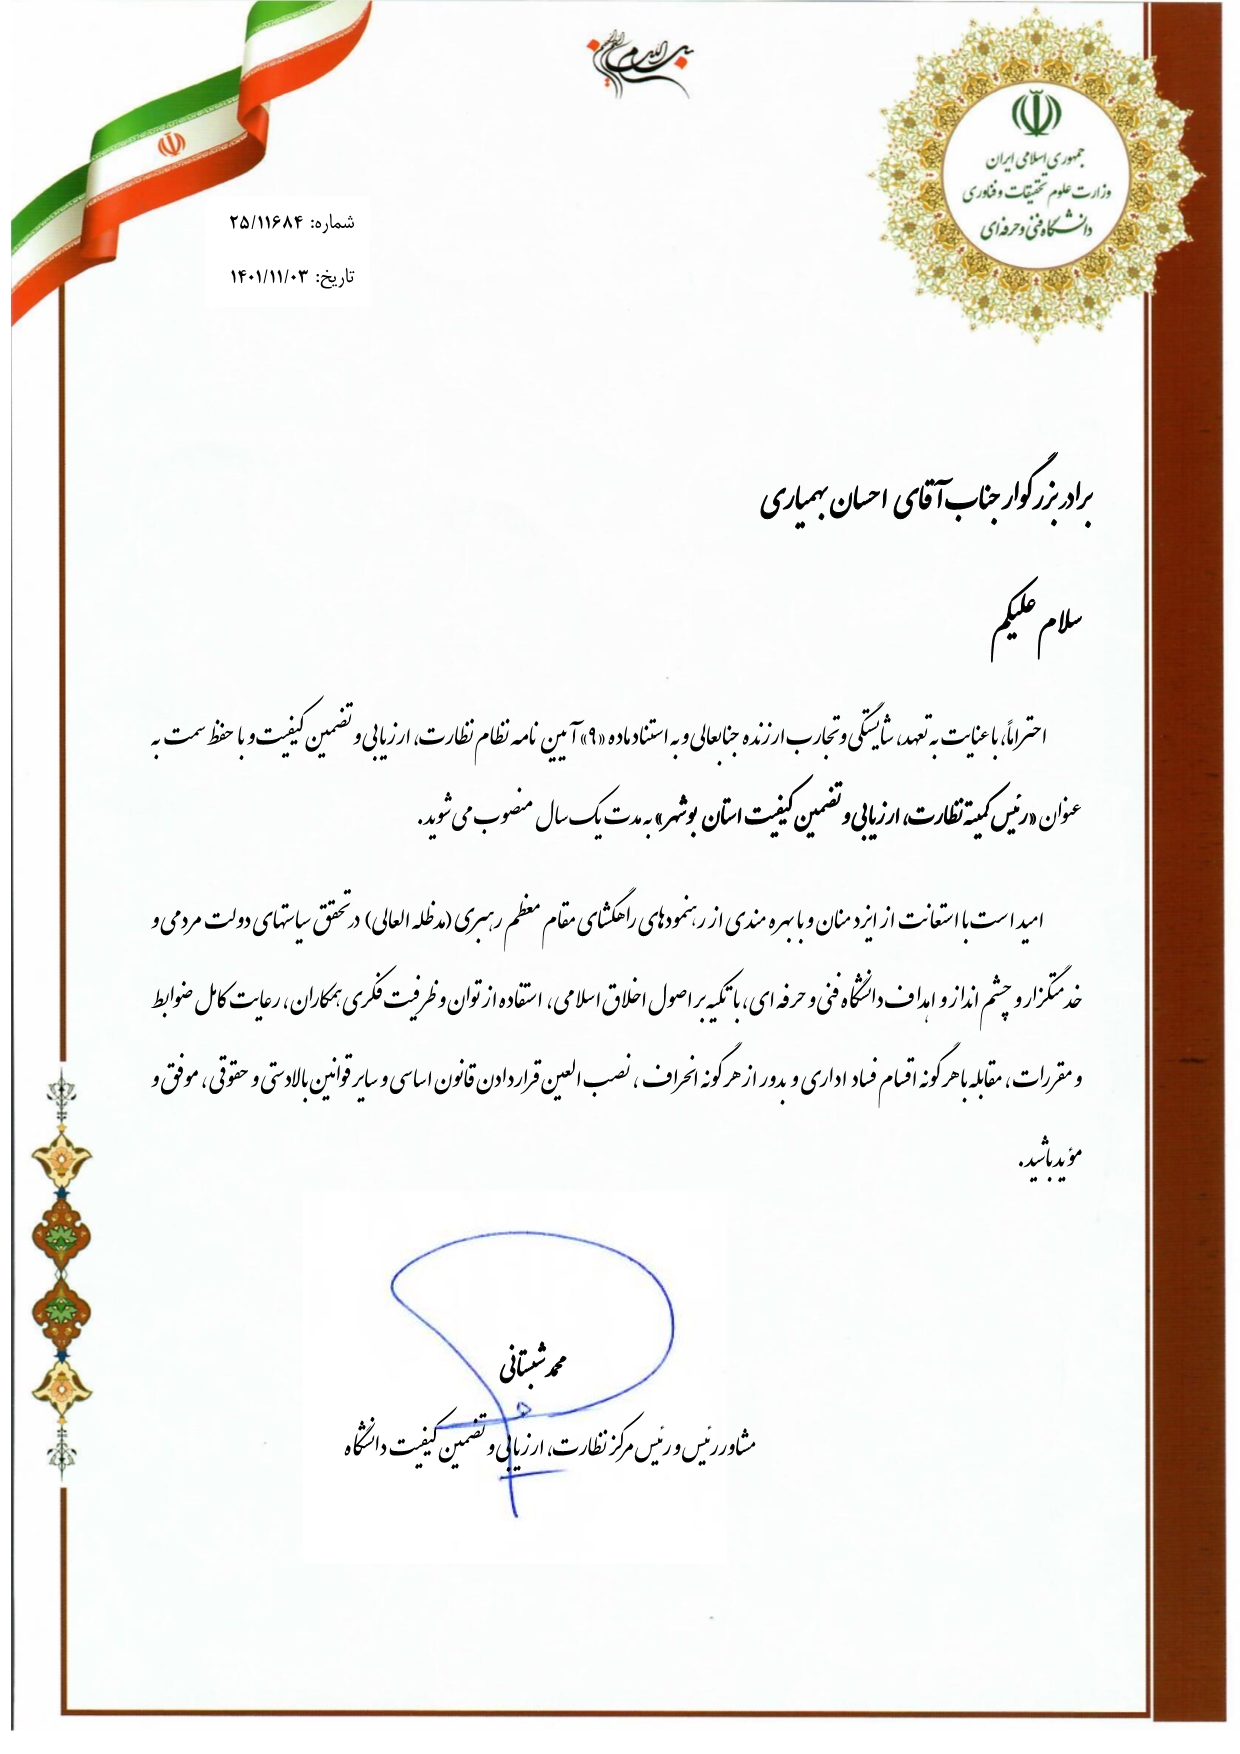 بسم الله الرحمن الرحیم
جمهوری اسلامی ایران
وزارت علوم تحقیقات و فناوری
دانشگاه فنی و حرفه‌ای
شماره: ۲۵/۱۱۶۸۴
تاریخ: ۱۴۰۱/۱۱/۰۳
برادر بزرگوار جناب آقای احسان بهمیاری
سلام علیکم
احتراماً، با عنایت به تعهد، شایستگی و تجارب ارزنده جنابعالی و به استناد ماده «۹» آیین نامه نظام نظارت، ارزیابی و تضمین کیفیت و با حفظ سمت به
عنوان «رئیس کمیته نظارت، ارزیابی و تضمین کیفیت استان بوشهر» به مدت یک سال منصوب می شوید.
امید است با استعانت از ایزد منان و با بهره مندی از رهنمودهای راهگشای مقام معظم رهبری (مدظله العالی) در تحقق سیاستهای دولت مردمی و
خدمتگزار و چشم انداز و اهداف دانشگاه فنی و حرفه ای، با تکیه بر اصول اخلاق اسلامی، استفاده از توان و ظرفیت فکری همکاران، رعایت کامل ضوابط
و مقررات، مقابله با هر گونه اقسام فساد اداری و بدور از هر گونه انحراف، نصب العین قرار دادن قانون اساسی و سایر قوانین بالادستی و حقوقی، موفق و
مؤید باشید.
محمد شبستانی
مشاور رئیس و رئیس مرکز نظارت، ارزیابی و تضمین کیفیت دانشگاه